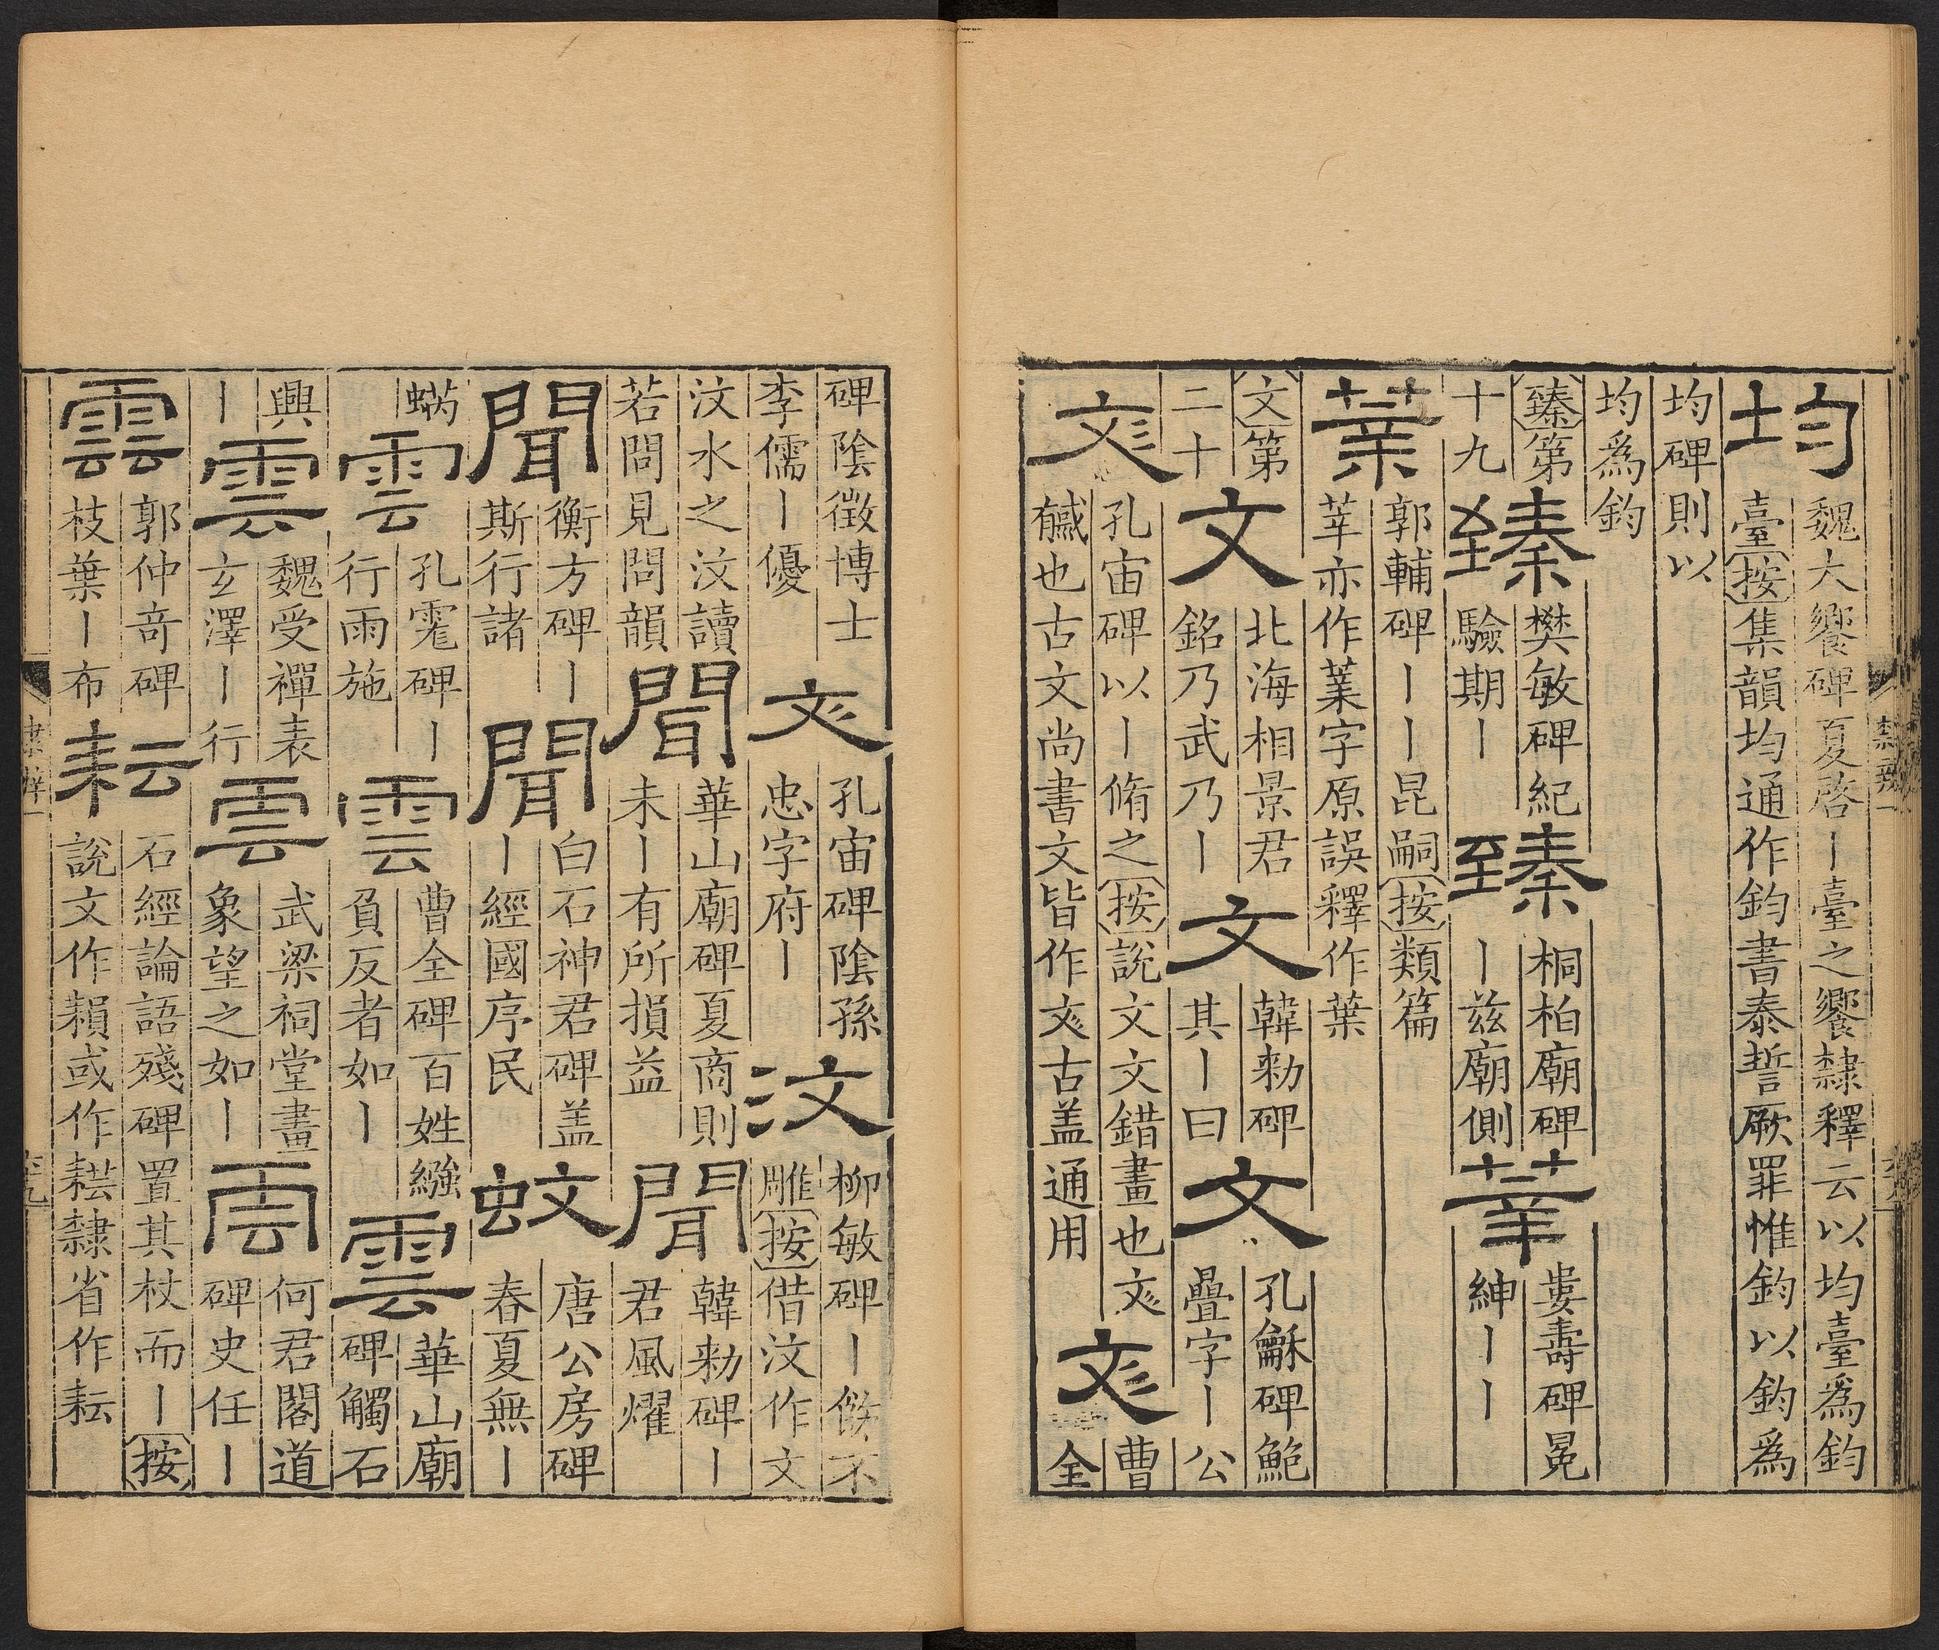 均
魏大饗碑夏啓｜臺之饗隸釋云以均臺爲鈞
臺按集韻均通作鈞書泰誓厥罪惟鈞以鈞爲
均碑則以
均爲鈞
臻第
十九
臻
樊敏碑紀
驗期｜
臻
桐柏廟碑
｜兹廟側
莘
婁壽碑冕
紳｜｜
郭輔碑｜｜昆嗣按類篇
莘亦作字原誤釋作葉
文第
二十
文
北海相景君
銘乃武乃｜
文
韓勑碑
其｜曰
文
孔龢碑鮑
疊字｜公
彣
孔宙碑以｜脩之按說文文錯畫也彣
也古文尚書文皆作彣古盖通用
彣
曹
全
碑陰徵博士
李儒｜優
彣
孔宙碑陰孫
忠字府｜
汶
柳敏碑｜不
雕按借汶作文
汶水之汶讀
若問見問韻
聞
華山廟碑夏商則
未｜有所損益
聞
韓勑碑｜
君風燿
聞
衡方碑｜
斯行諸
聞
白石神君碑盖
｜經國序民
蚊
唐公房碑
春夏無｜
雲
孔碑｜
行雨施
雲
曹全碑百姓繈
負反者如｜
雲
華山廟
碑觸石
興
｜
雲
魏受禪表
玄澤｜行
雲
武梁祠堂畫
象望之如｜
雲
何君閣道
碑史任｜
雲
郭仲奇碑
枝葉｜布
耘
石經論語殘碑置其杖而｜按
說文作䅵或作耘隸省作耘